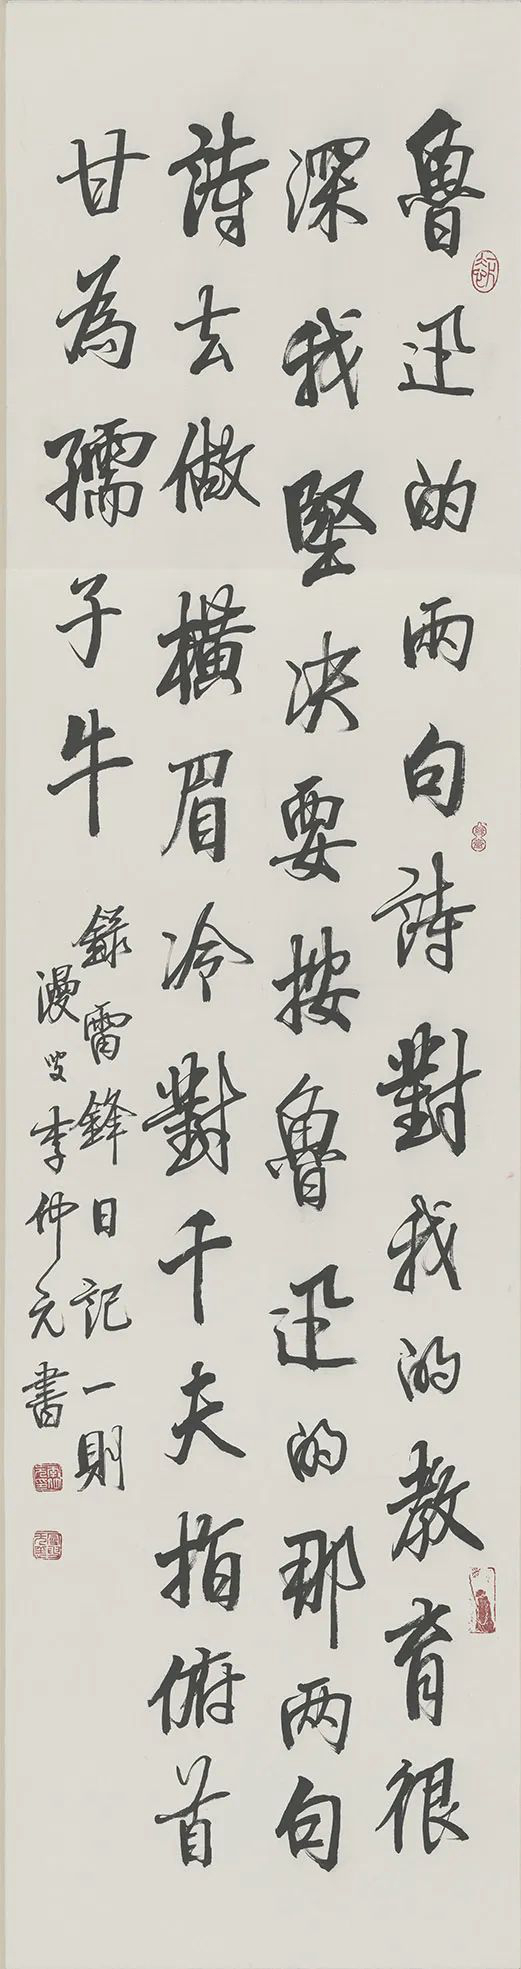 魯迅的兩句詩對我的教育很
深我堅决要按魯迅的那两句
詩去做橫眉冷對千夫指俯首
甘為孺子牛
錄雷鋒日記一則
漫叟李仲元書